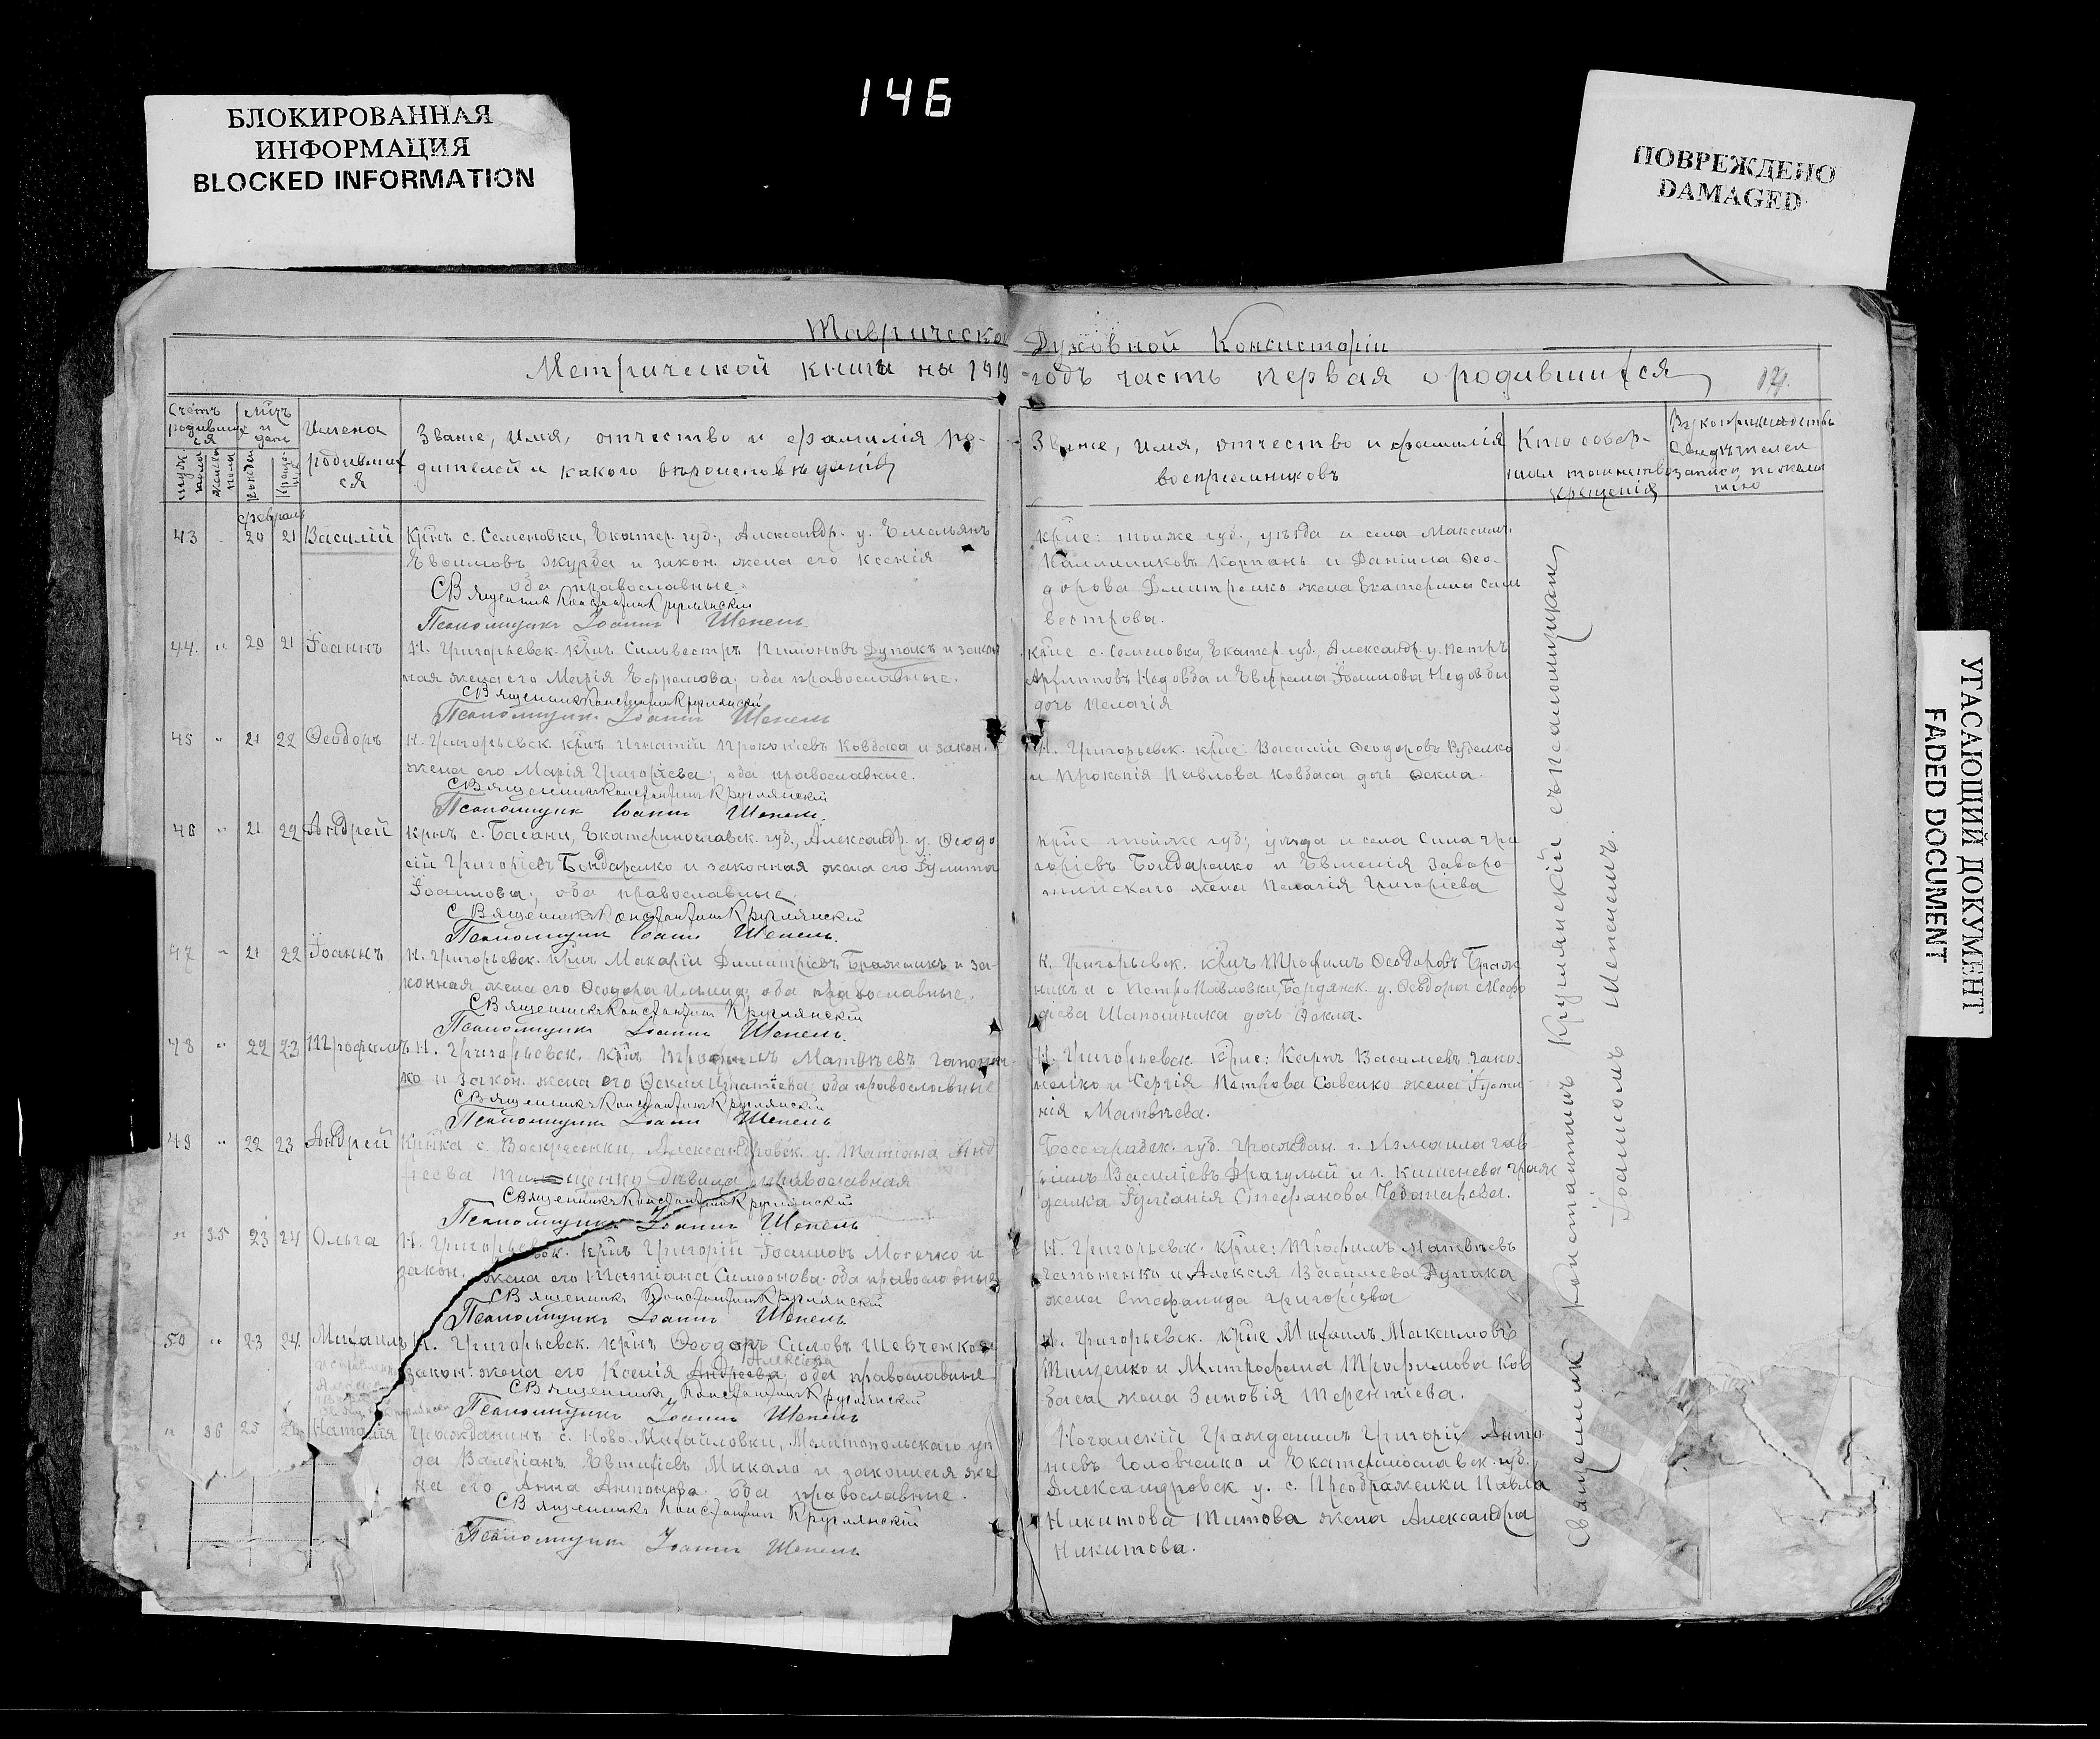 146
БЛОКИРОВАННАЯ
ИНФОРМАЦИЯ
BLOCKED INFORMATION
ПОВРЕЖДЕНО
DAMAGED
УГАСАЮЩИЙ ДОКУМЕНТ
FADED DOCUMENT
Таврическо Духовной Консисторіи
Метрической книги на 1919 годъ часть первая о родившихся
Счетъ родившихся
Мцъ и день
Имена родившихся
Званіе, имя, отчество и фамилія родителей и какого вѣроисповѣданія
Званіе, имя, отчество и фамилія
воспріемниковъ
Кто совершал таинство крещенія
Рукоприкладство свидѣтелей записи по желанію
февраль
43 20 21 Василій
Крнъ с. Семеновки, Екатер. губ., Александр. у. Емельянъ
Евѳимовъ Журба и закон. жена его Ксенія
оба православные.
Священникъ Константинъ Круглянскій
Псаломщикъ Іоаннъ Шепель.
Крне: тойже губ., уѣзда и села Максимъ
Каллиниковъ Корпань и Даніила Ѳео-
дорова Дмитренко жена Екатерина Силь
вестрова.
44. " 20 21 Іоаннъ
Н. Григорьевск. крнъ Сильвестръ Пимоновъ Дупакъ и закон
ная жена его Марія Ефремова; оба православные.
Священникъ Константинъ Круглянскій
Псаломщикъ Іоаннъ Шепель
крне с. Семеновки, Екатер. губ., Александр. у. Петръ
Недовба и Ефрема Іоаннова Недовбы
дочь Пелагія
45 " 21 22 Ѳеодоръ
Н. Григорьевск. крнъ Игнатій Прокопіевъ Ковбаса и закон.
жена его Марія Григоріева; оба православные.
Священникъ Константинъ Круглянскій
Псаломщикъ Іоаннъ Шепель.
Н. Григорьевск. крне: Василій Ѳеодоровъ Руденко
и Прокопія Павлова Ковбаса дочь Ѳекла.
46 " 21 22 Андрей
Крнъ с. Басани, Екатеринославск. губ., Александр. у. Ѳеодо
сій Григоріевъ Бондаренко и законная жена его Іулита
Іоаннова; оба православные.
Священникъ Константинъ Круглянскій
Псаломщикъ Іоаннъ Шепель.
крне тойже губ; уѣзда и села Сила Гри
горіевъ Бондаренко и Евгенія Заворо-
тинскаго жена Пелагія Григоріева
47 " 21 22 Іоаннъ
Н. Григорьевск. крнъ Макарій Димитріевъ Бражникъ и за-
конная жена его Ѳеодора Ильина; оба православные.
Священникъ Константинъ Круглянскій
Псаломщикъ Іоаннъ Шепель.
Н. Григорьевск. крнъ Трофимъ Ѳеодоровъ Браж
никъ и с. Петро-Павловки, Бердянск. у. Ѳеодора Меѳо
діева Шапошника дочь Ѳекла.
48 " 22 23 Трофимъ
Н. Григорьевск. крнъ Трофимъ Матвѣевъ Гапонен
ко и закон. жена его Ѳекла Игнатіева; оба православные
Священникъ Константинъ Круглянскій
Псаломщикъ Іоаннъ Шепель
Н. Григорьевск. крне: Карпъ Василіевъ Гапо-
ненко и Сергія Петрова Савенко жена Іусти
нія Матвѣева.
49 " 22 23 Андрей
Крнка с. Воскресенки, Александровск. у. Татіана Анд
реева дѣвица православная
Священникъ Константинъ Круглянскій
Псаломщикъ Іоаннъ Шепель
Бессарабск. губ. граждан. г. Измаила Гав
ріилъ Василіевъ Драгулый и г. Кишенева граж
данка Іуліанія Стефанова Чеботарева.
" 35 23 24 Ольга
Н. Григорьевск. крнъ Григорій Іоанновъ Могечко и
закон. жена его Татіана Симеонова. оба православные
Священникъ Константинъ Круглянскій
Псаломщикъ Іоаннъ Шепель
Н. Григорьевск. крне: Трофимъ Матвѣевъ
Гапоненко и Алексія Василіева Дупака
жена Стефанида Григоріева
50 " 23 24. Михаилъ
Н. Григорьевск. крнъ Ѳеодоръ Силовъ Шевченко и
Алексіева
закон. жена его Ксенія Андреева, оба православные
Священникъ Константинъ Круглянскій
Псаломщикъ Іоаннъ Шепель
Н. Григорьевск. крне Михаилъ Максимовъ
Тищенко и Митрофана Трофимова Ков
баса жена Зиновія Терентіева.
" 36 25 26 Наталія
Гражданинъ с. Ново-Михайловки, Мелитопольскаго уѣз
да Валеріанъ Евтихіевъ Микало и законная же
на его Анна Антонова. оба православные.
Священникъ Константинъ Круглянскій
Псаломщикъ Іоаннъ Шепель
Ногайскій гражданинъ Григорій Анто
ніевъ Головченко и Екатеринославск. губ.,
Александровск у. с. Преображенки Павла
Никитова Титова жена Александра
Никитова.
Священник Константинъ Круглянскій съ псаломщикомъ
Іоанномъ Шепелемъ.